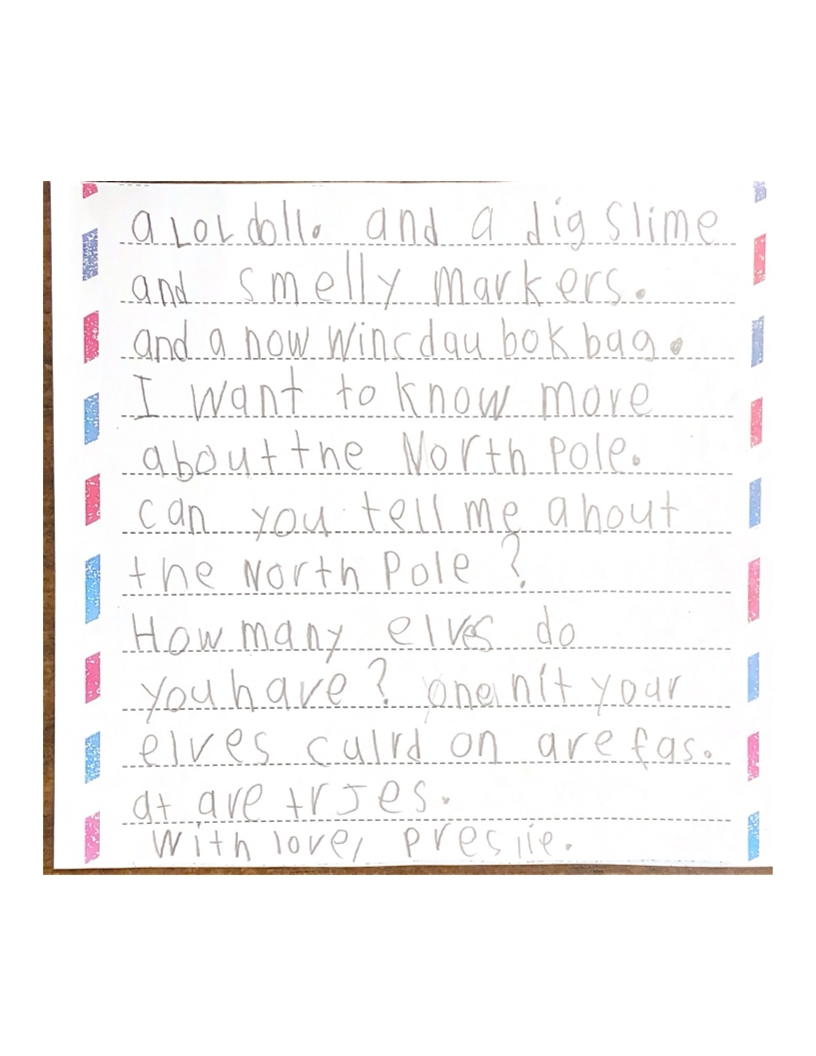 a LOL doll. and a dig slime
and smelly markers.
and a now wincdau bok bag.
I want to know more
about the North Pole.
can you tell me ahout
the North Pole ?
How many elves do
you have ? one nit your
elves culrd on are fas.
at are trJes.
With love, preslie.